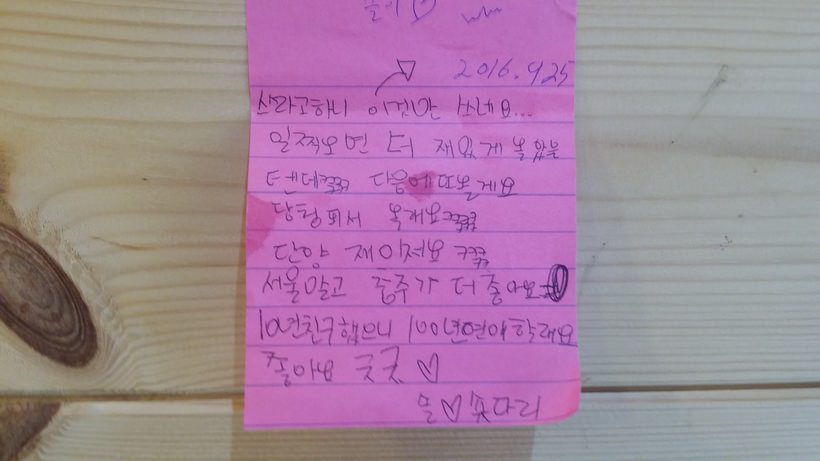 2016.9.25
쓰라고하니 이것만 쓰네요...
일찍오면 더 재밌게 놀았을
텐데ㅋㅋㅋ 다음에또올게요
당첨되서 올게요ㅋㅋㅋ
단양 재미져요 ㅋㅋㅋ
서울말고 충주가 더 좋아요
10년친구했으니 100년연애할래요
좋아요 굿굿 ♡
믈♡숏다리